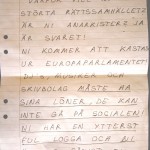 VARFÖR VILL NI
STÖRTA RÄTTSSAMHÄLLET?
ÄR NI ANARKISTER? JA
ÄR SVARET!
NI KOMMER ATT KASTAS
UR EUROPAPARLAMENTET!
DJ:S, MUSIKER OCH
SKIVBOLAG MÅSTE HA
SINA LÖNER, DE KAN
INTE GÅ PÅ SOCIALEN!
NI HAR EN YTTERST
FUL LOGGA OCH